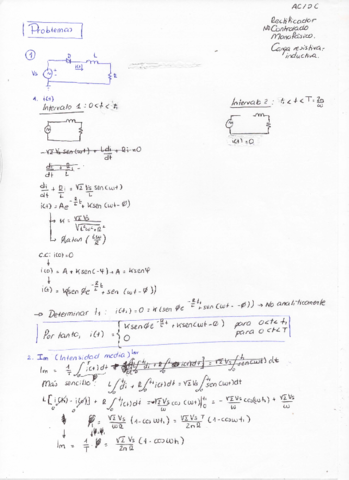 AC/DC
Rectificador
No Controlado
Monofásico.
Carga resistiva-
inductiva.
Problemas
1
D L
Vs R
i(t)
1. i(t)
Intervalo 1: 0<t<t₁
Intervalo 2: t₁<t<T=2π/ω
i(t)=0
-√2 Vs sen(ωt) + L di/dt + Ri = 0
di/dt + R/L i = √2 Vs/L sen(ωt)
i(t) = Ae^(-R/L t) + K sen(ωt-φ)
K = √2 Vs / √(L²ω²+R²)
φ = arctan (Lω/R)
c.c: i(0)=0
i(0) = A + K sen(-φ) → A = K senφ
i(t) = K[senφ e^(-R/L t) + sen(ωt-φ)]
→ Determinar t₁: i(t₁)=0 = K(senφ e^(-R/L t₁) + sen(ωt₁-φ)) → No analíticamente
Por tanto, i(t) = { K senφ e^(-R/L t) + K sen(ωt-φ) para 0<t<t₁
0 para t₁<t<T
2. Im (Intensidad media)
Im = 1/T ∫ i(t) dt
Más sencillo: L∫ di + R∫ i(t) dt = √2 Vs ∫ sen(ωt) dt
L[i(t₁) - i(0)] + R∫ i(t) dt = -√2 Vs/ω cos(ωt)|₀ = -√2 Vs/ω cos(ωt₁) + √2 Vs/ω
= √2 Vs/ωR (1-cosωt₁) = √2 Vs T/2πR (1-cosωt₁)
Im = 1/T = √2 Vs/2πR (1-cosωt₁)